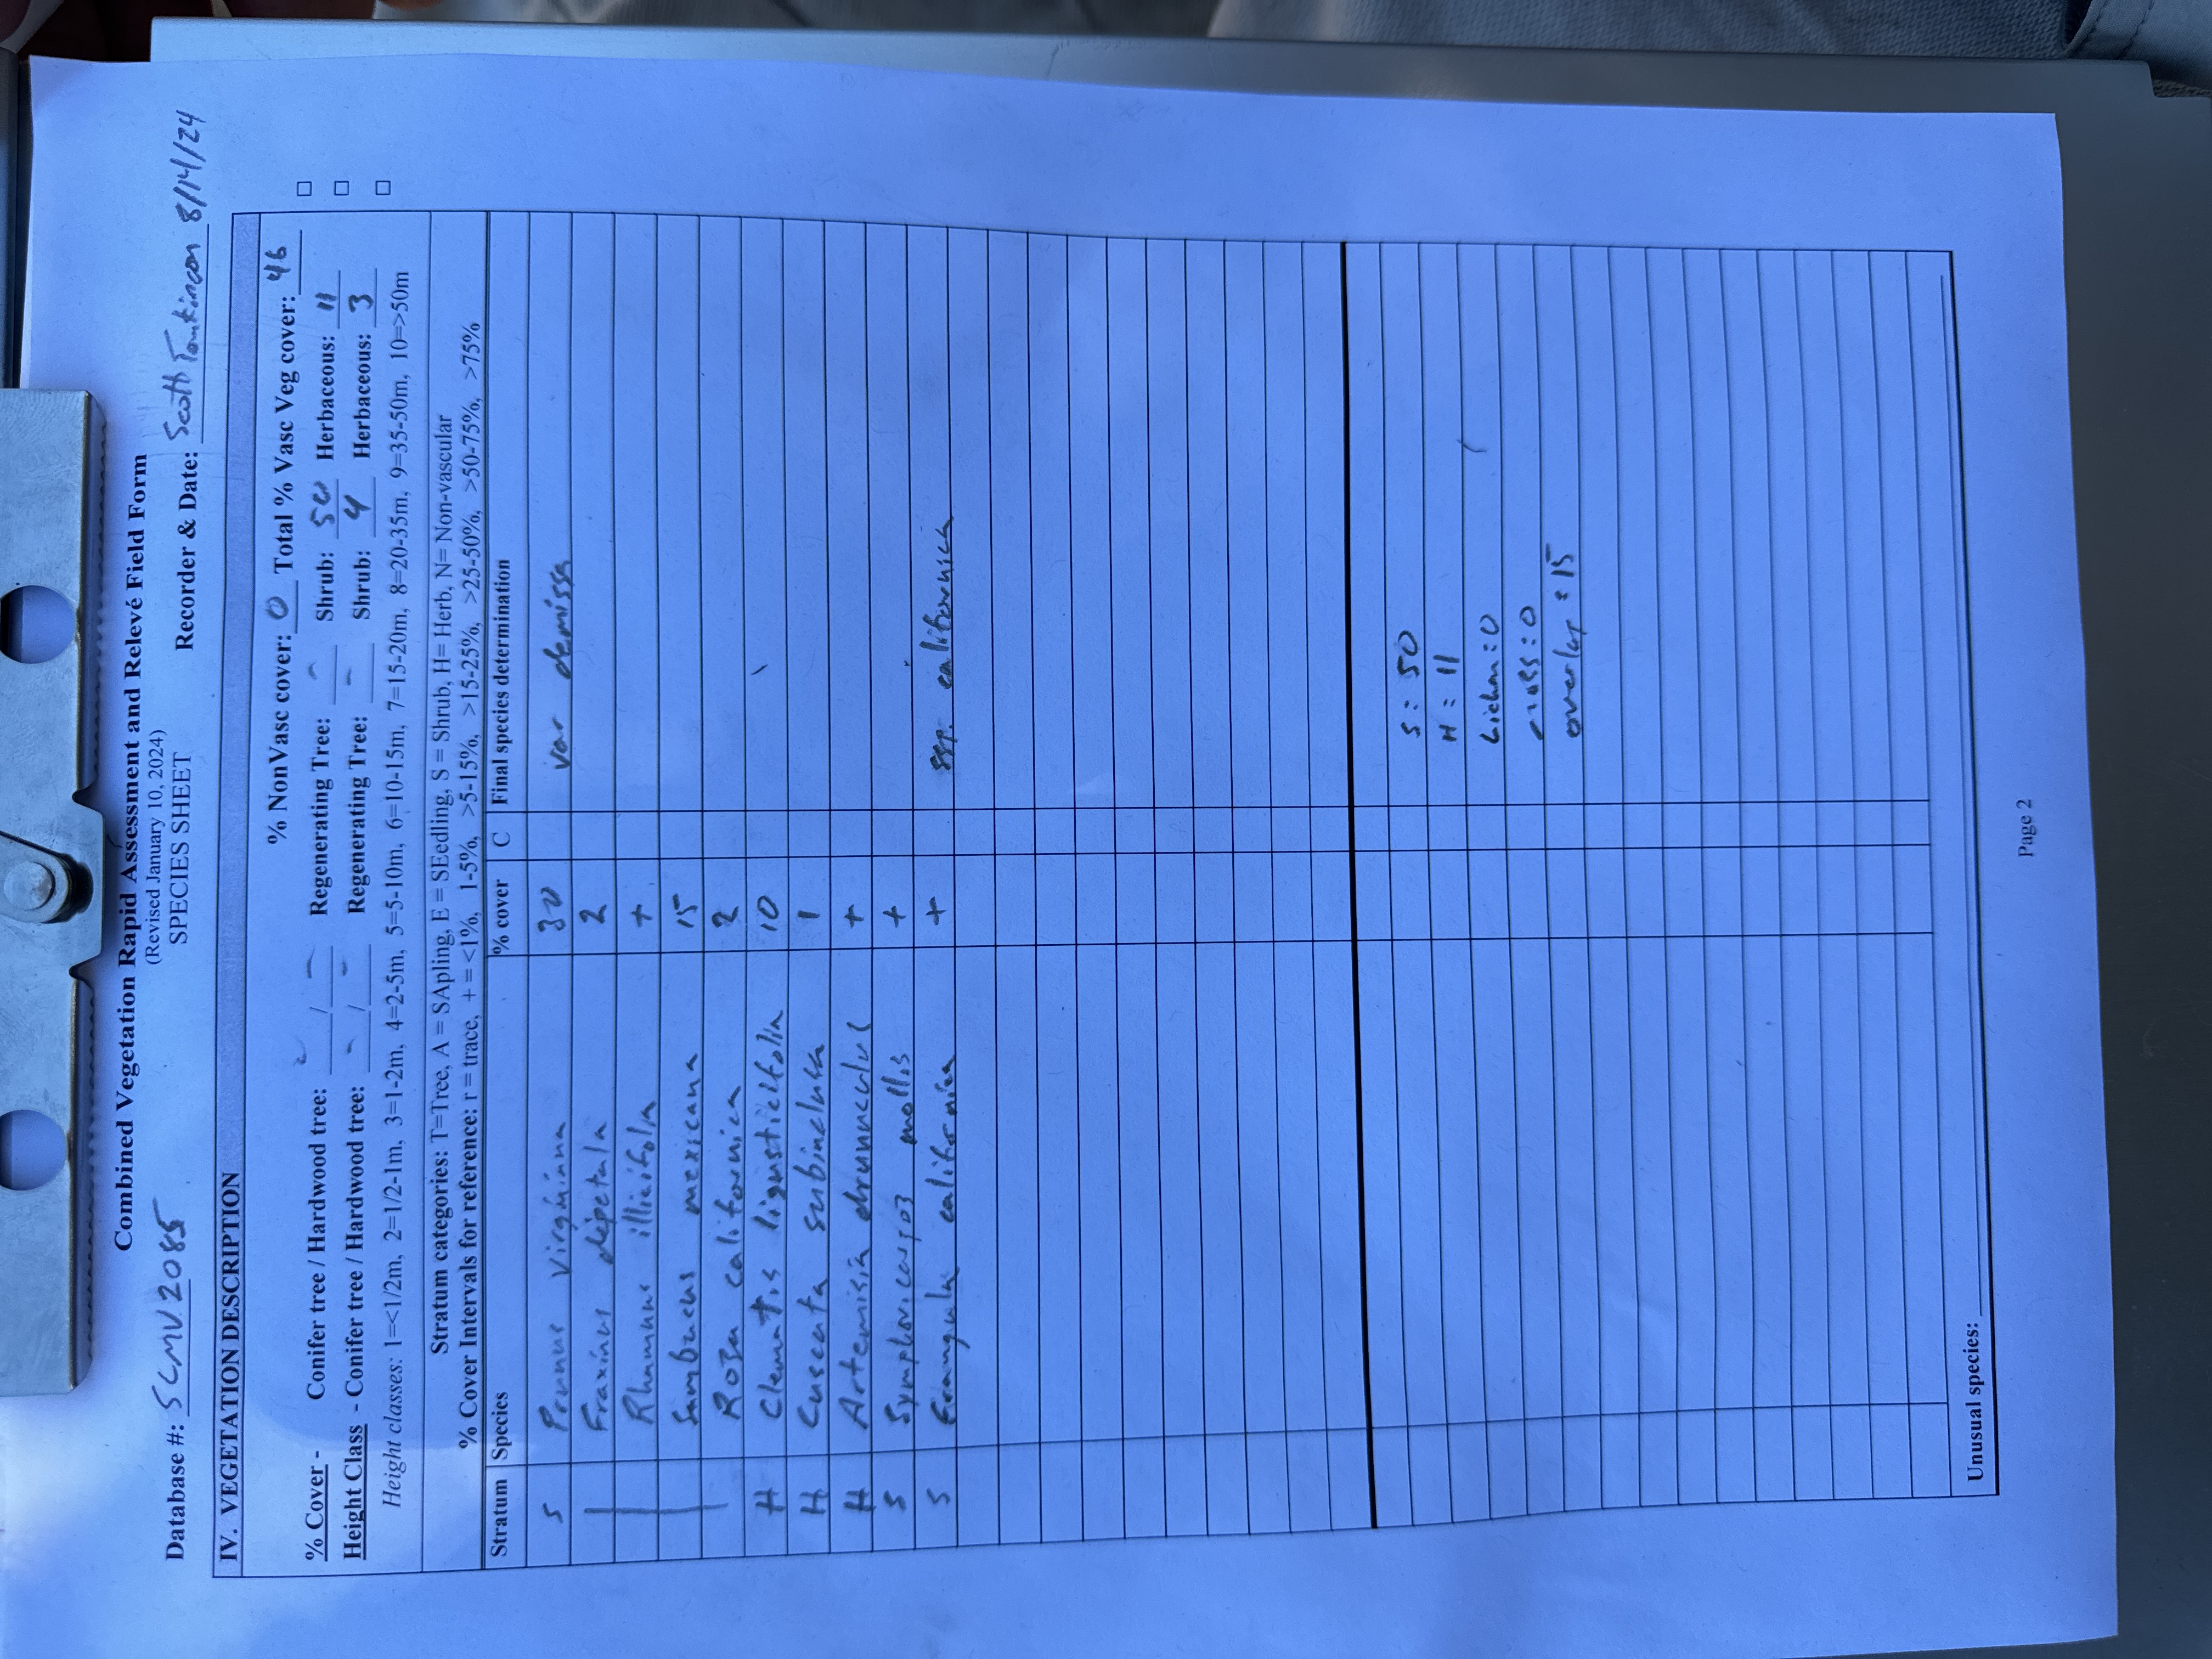 Combined Vegetation Rapid Assessment and Relevé Field Form
(Revised January 10, 2024)
SPECIES SHEET
Database #: SCMV2085 Recorder & Date: Scott 8/14/24
IV. VEGETATION DESCRIPTION
% NonVasc cover: 0 Total % Vasc Veg cover: 46
% Cover - Conifer tree / Hardwood tree: - / - Regenerating Tree: - Shrub: 50 Herbaceous: 11
Height Class - Conifer tree / Hardwood tree: - / - Regenerating Tree: - Shrub: 4 Herbaceous: 3
Height classes: 1=<1/2m, 2=1/2-1m, 3=1-2m, 4=2-5m, 5=5-10m, 6=10-15m, 7=15-20m, 8=20-35m, 9=35-50m, 10=>50m
Stratum categories: T=Tree, A = SApling, E = SEedling, S = Shrub, H= Herb, N= Non-vascular
% Cover Intervals for reference: r = trace, + = <1%, 1-5%, >5-15%, >15-25%, >25-50%, >50-75%, >75%
Stratum Species % cover C Final species determination
S Prunus virginiana 30 var demissa
| Fraxinus dipetala 2
| Rhamnus illicifola +
| Sambucus mexicana 15
| Rosa californica 2
H Clematis ligusticifolia 10
H Cuscuta subinclusa 1
H Artemisia drunculus +
S Symphoricarpos mollis +
S Frangula californica + ssp. californica
S = 50
H = 11
Lichen = 0
moss = 0
overlap = 15
Unusual species:
Page 2